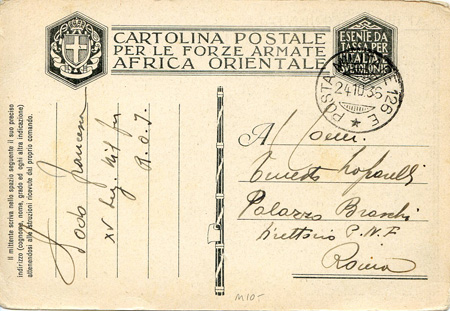 CARTOLINA POSTALE
PER LE FORZE ARMATE
AFRICA ORIENTALE
ESENTE DA
TASSA PER
L'ITALIA
E SUE COLONIE
POSTA MILITARE 126 E
24.10.36
Il mittente scriva nello spazio seguente il suo preciso
indirizzo (cognome, nome, grado ed ogni altra indicazione)
attenendosi alle istruzioni ricevute dal proprio comando.
Francesco
XV
A
Ernesto
Palazzo Braschi
Direttorio P.N.F
Roma
M10-